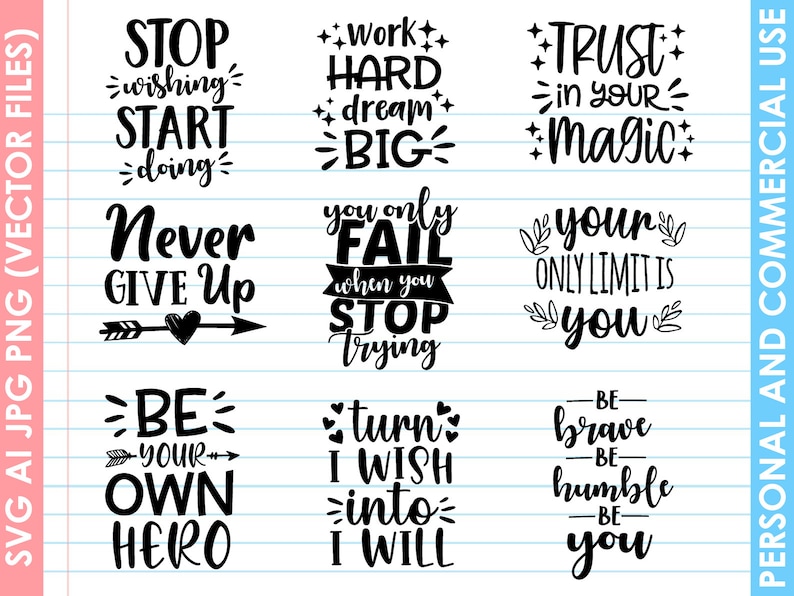 SVG AI JPG PNG (VECTOR FILES)
STOP
wishing
START
doing
work
HARD
dream
BIG
TRUST
in your
magic
Never
GIVE Up
you only
FAIL
when you
STOP
trying
your
ONLY LIMIT IS
you
BE
YOUR
OWN
HERO
turn
I WISH
into
I WILL
BE
brave
BE
humble
BE
you
PERSONAL AND COMMERCIAL USE